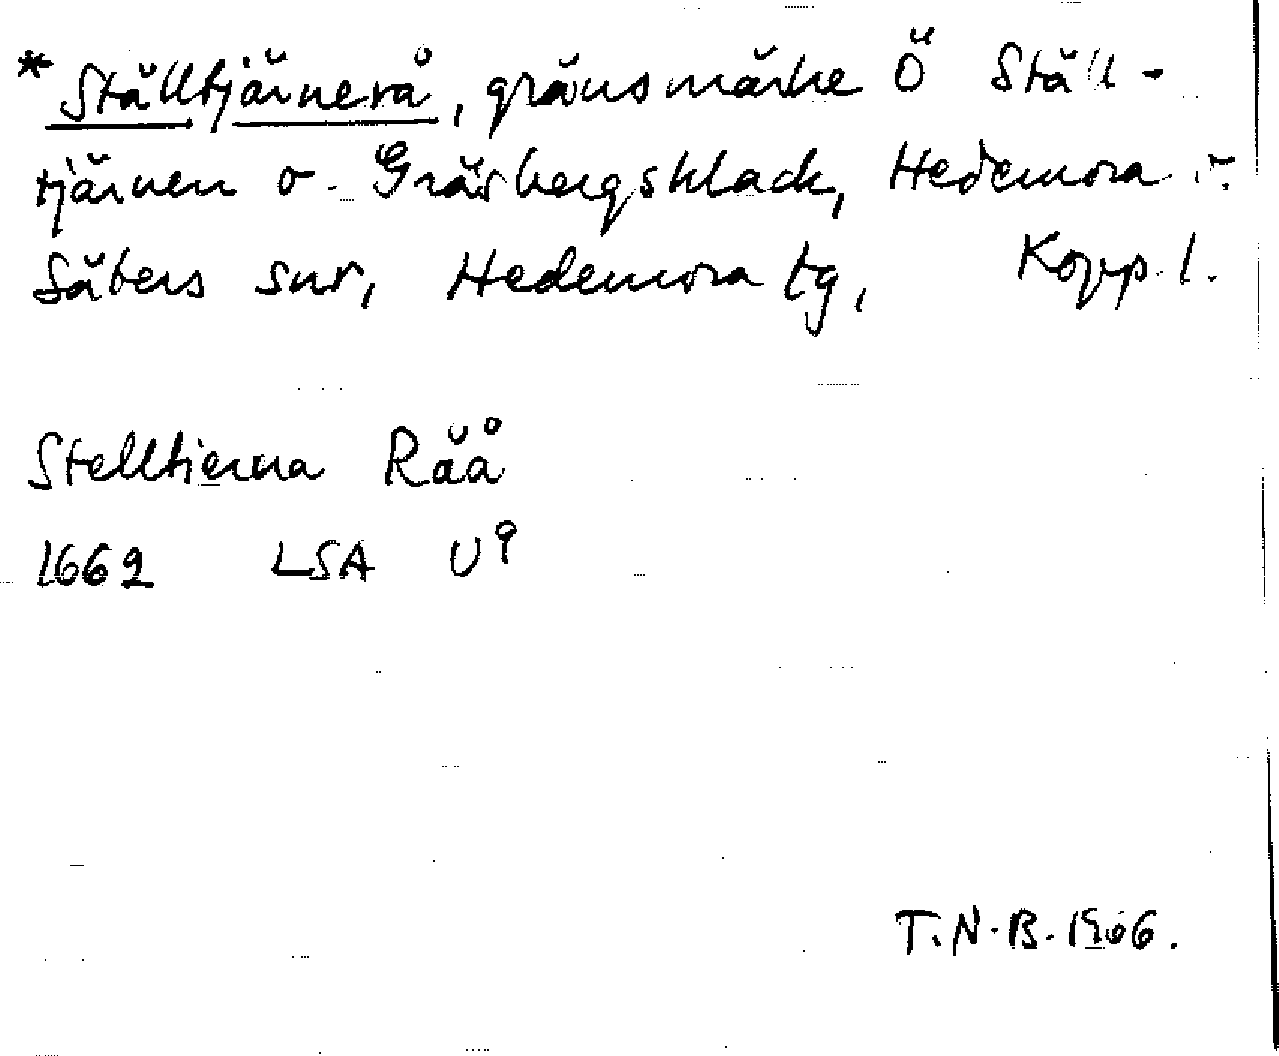 *Ställtjärnerå, gränsmärke Ö Ställ-
tjärnen o. Gräsbergsklack, Hedemora :
Säters snr, Hedemora tg, Kopp. l.
Stelltierna Råå
1662 LSA U9
T.N.B. 1966.